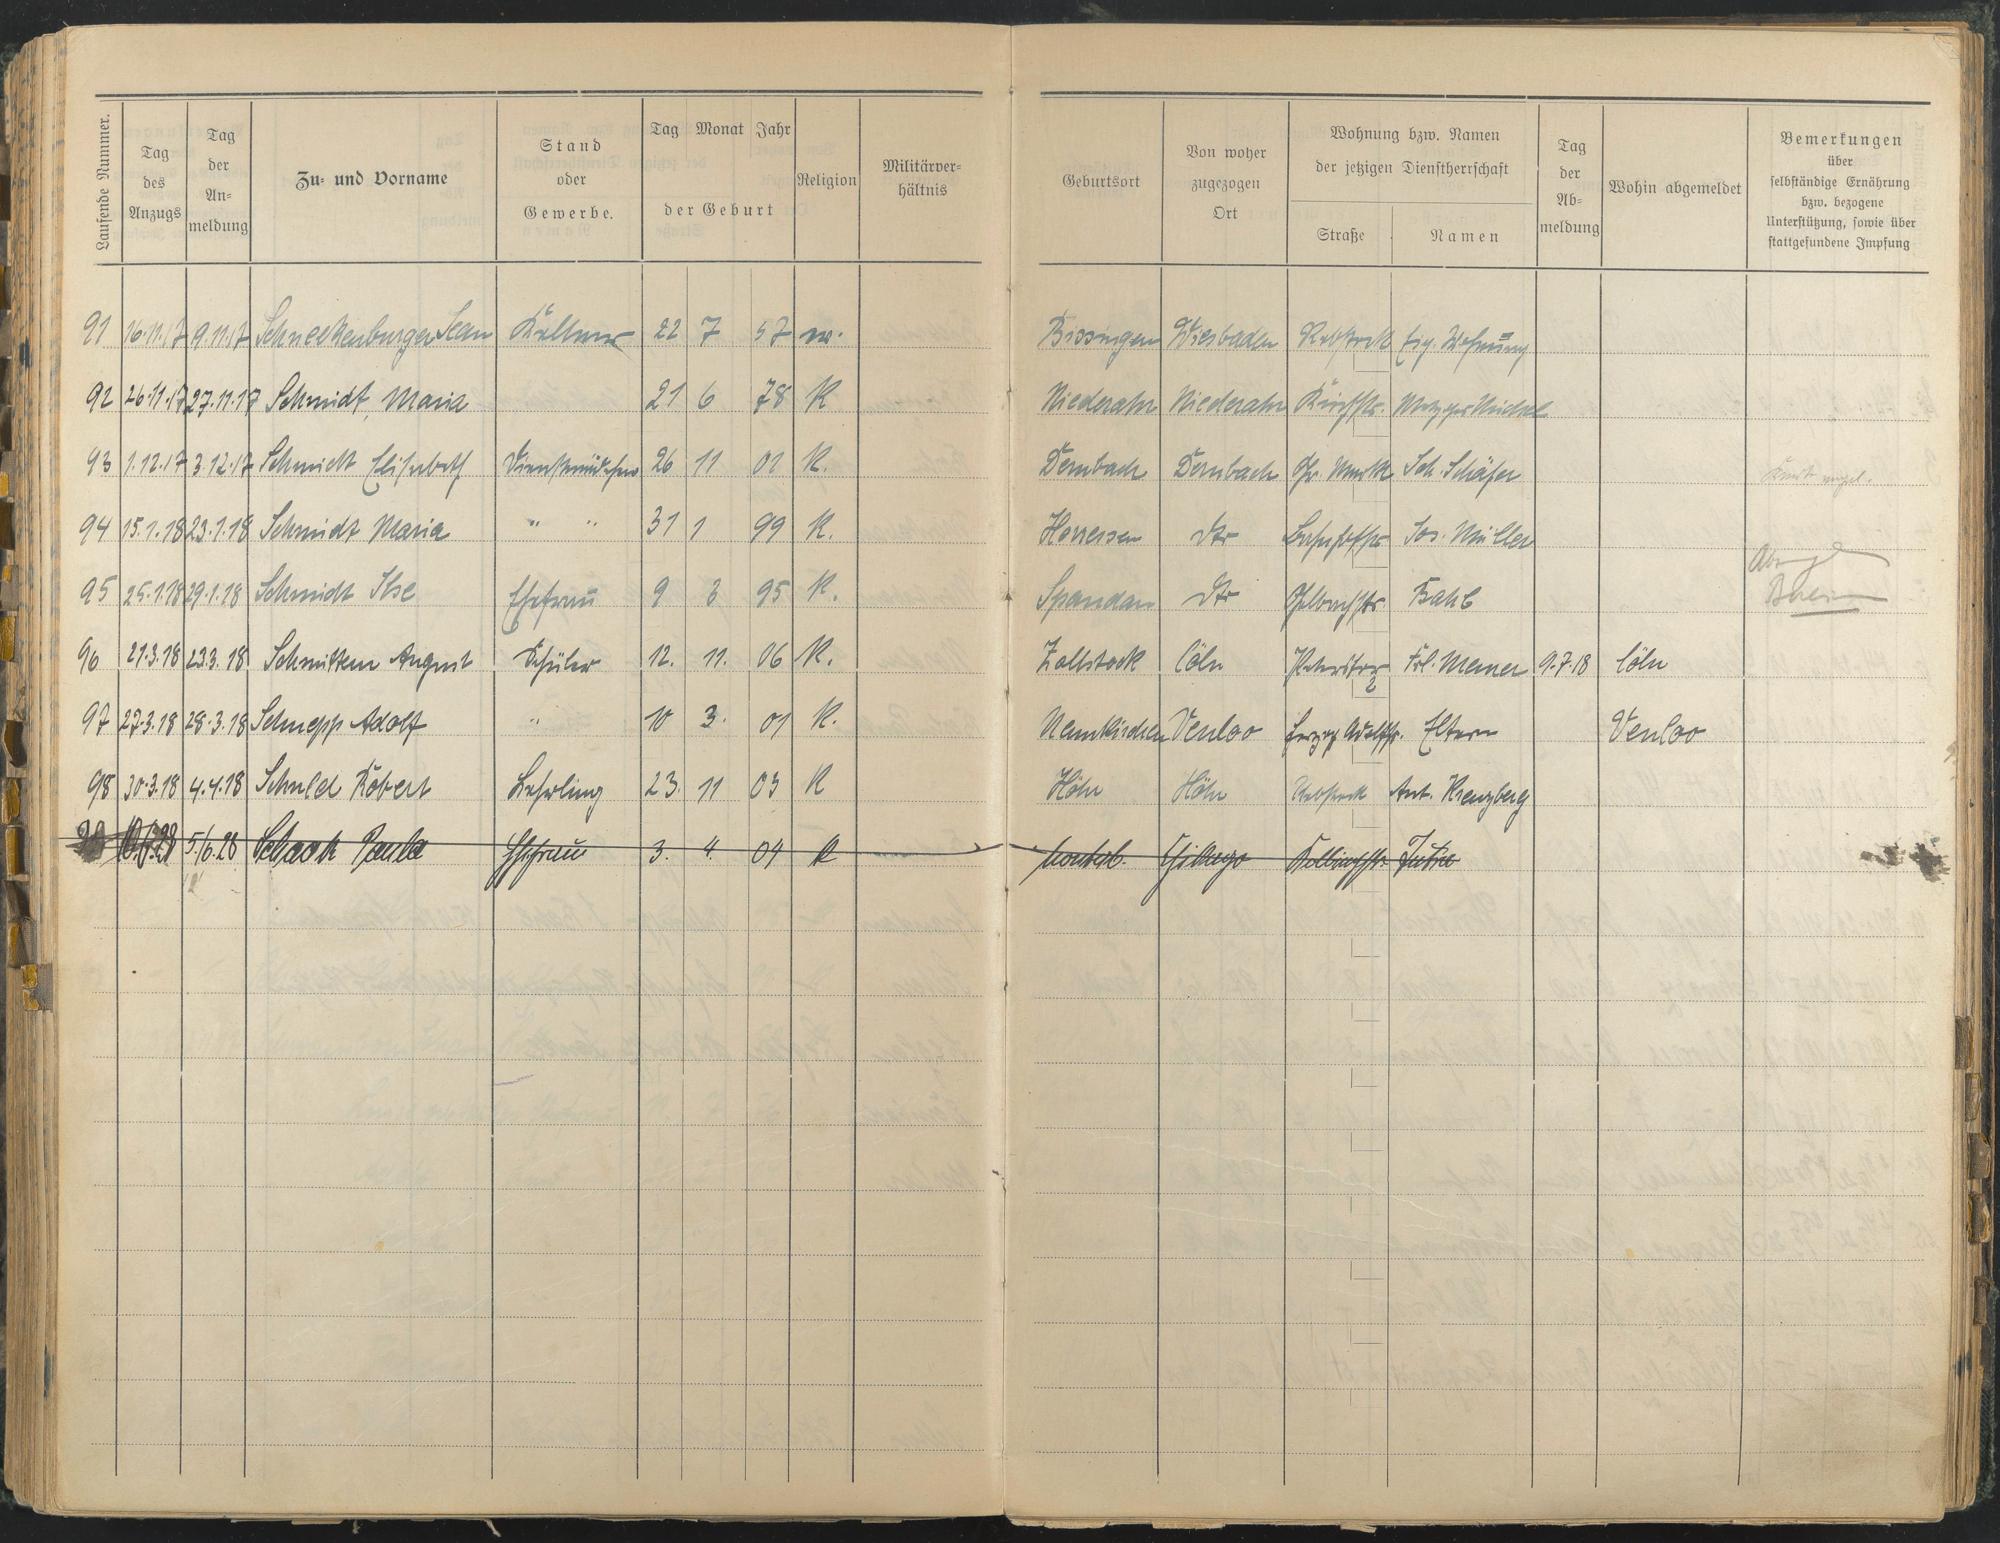 Laufende Nummer. Tag des Anzugs Tag der An=meldung Zu= und Vorname Stand oder Gewerbe. Tag Monat Jahr der Geburt Religion Militärver=hältnis Geburtsort Von woher zugezogen Ort Wohnung bzw. Namen der jetzigen Dienstherrschaft Straße Namen Tag der Ab=meldung Wohin abgemeldet Bemerkungen über selbständige Ernährung bzw. bezogene Unterstützung, sowie über stattgefundene Impfung
91 16.11.17 9.11.17 Schneckenburger Jean Kellner 22 7 57 Bissingen Wiesbaden Rebstock Eig. Wohnung
92 26.11.17 27.11.17 Schmidt, Maria 21 6 78 K Niederahr Niederahr Kirchstr. Metzger
93 1.12.17 3.12.17 Schmidt Elisabeth Dienstmädchen 26 11 01 K. Dernbach Dernbach Gr. Markt Joh. Schäfer
94 15.1.18 23.1.18 Schmidt Maria " " 31 1 99 K. Horressen Dto Bahnhofstr Jos. Müller
95 25.1.18 29.1.18 Schmidt Ilse Ehefrau 9 3 95 K. Spandau Dto
96 21.3.18 23.3.18 Schmitten August Schüler 12. 11. 06 K. Zollstock Cöln Frl. Memer 9.7.18 Cöln
2
97 27.3.18 28.3.18 Schnepp Adolf " 10 3. 01 K. Neunkirchen Venloo Herzog Adolfstr. Eltern Venloo
98 30.3.18 4.4.18 Schuld Robert Lehrling 23. 11 03 K Höhn Höhn Rebstock Ant. Kreuzberg
5./6.28 Schaak Paula Ehefrau 3. 4. 04 K Montab. Chikago